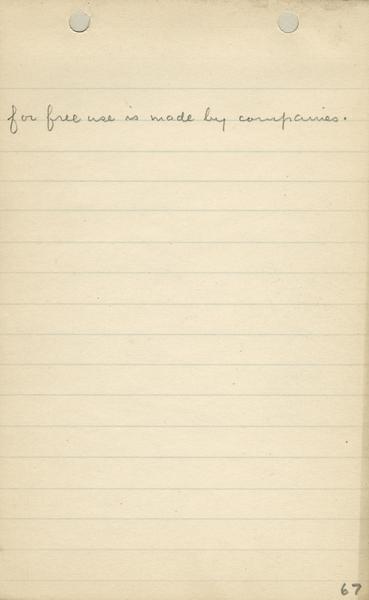 for free use is made by companies.
67